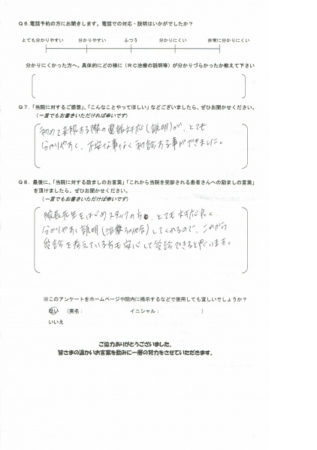 Q6.電話予約の方にお聞きします。電話での対応・説明はいかがでしたか？
とても分かりやすい 分かりやすい ふつう 分かりにくい 非常に分かりにくい
分かりにくかった方へ。具体的にどの様に（ＲＣ治療の説明等）が分かりづらかったか教えて下さい
Q7.「当院に対するご感想」、「こんなことやってほしい」などございましたら、ぜひお聞かせください。
（一言でもお書きいただければ幸いです）
初めて来院する際の電話対応（説明）が、とても
分かりやすく、不安な事もなく初診する事ができました。
Q8.最後に、「当院に対する励ましのお言葉」「これから当院を受診される患者さんへの励ましの言葉」
を頂けましたら、ぜひお聞かせください。
（一言でもお書きいただければ幸いです）
院長先生をはじめスタッフの方も とても対応良く
分かりやすく説明（治療 その他）してくれるので、これから
受診を考えている方も安心して受診できると思います。
※このアンケートをホームページや院内に掲示するなどで使用しても宜しいでしょうか？
はい （県名： イニシャル： ）
いいえ
ご協力ありがとうございました。
皆さまの温かいお言葉を励みに一層の努力をさせていただきます。